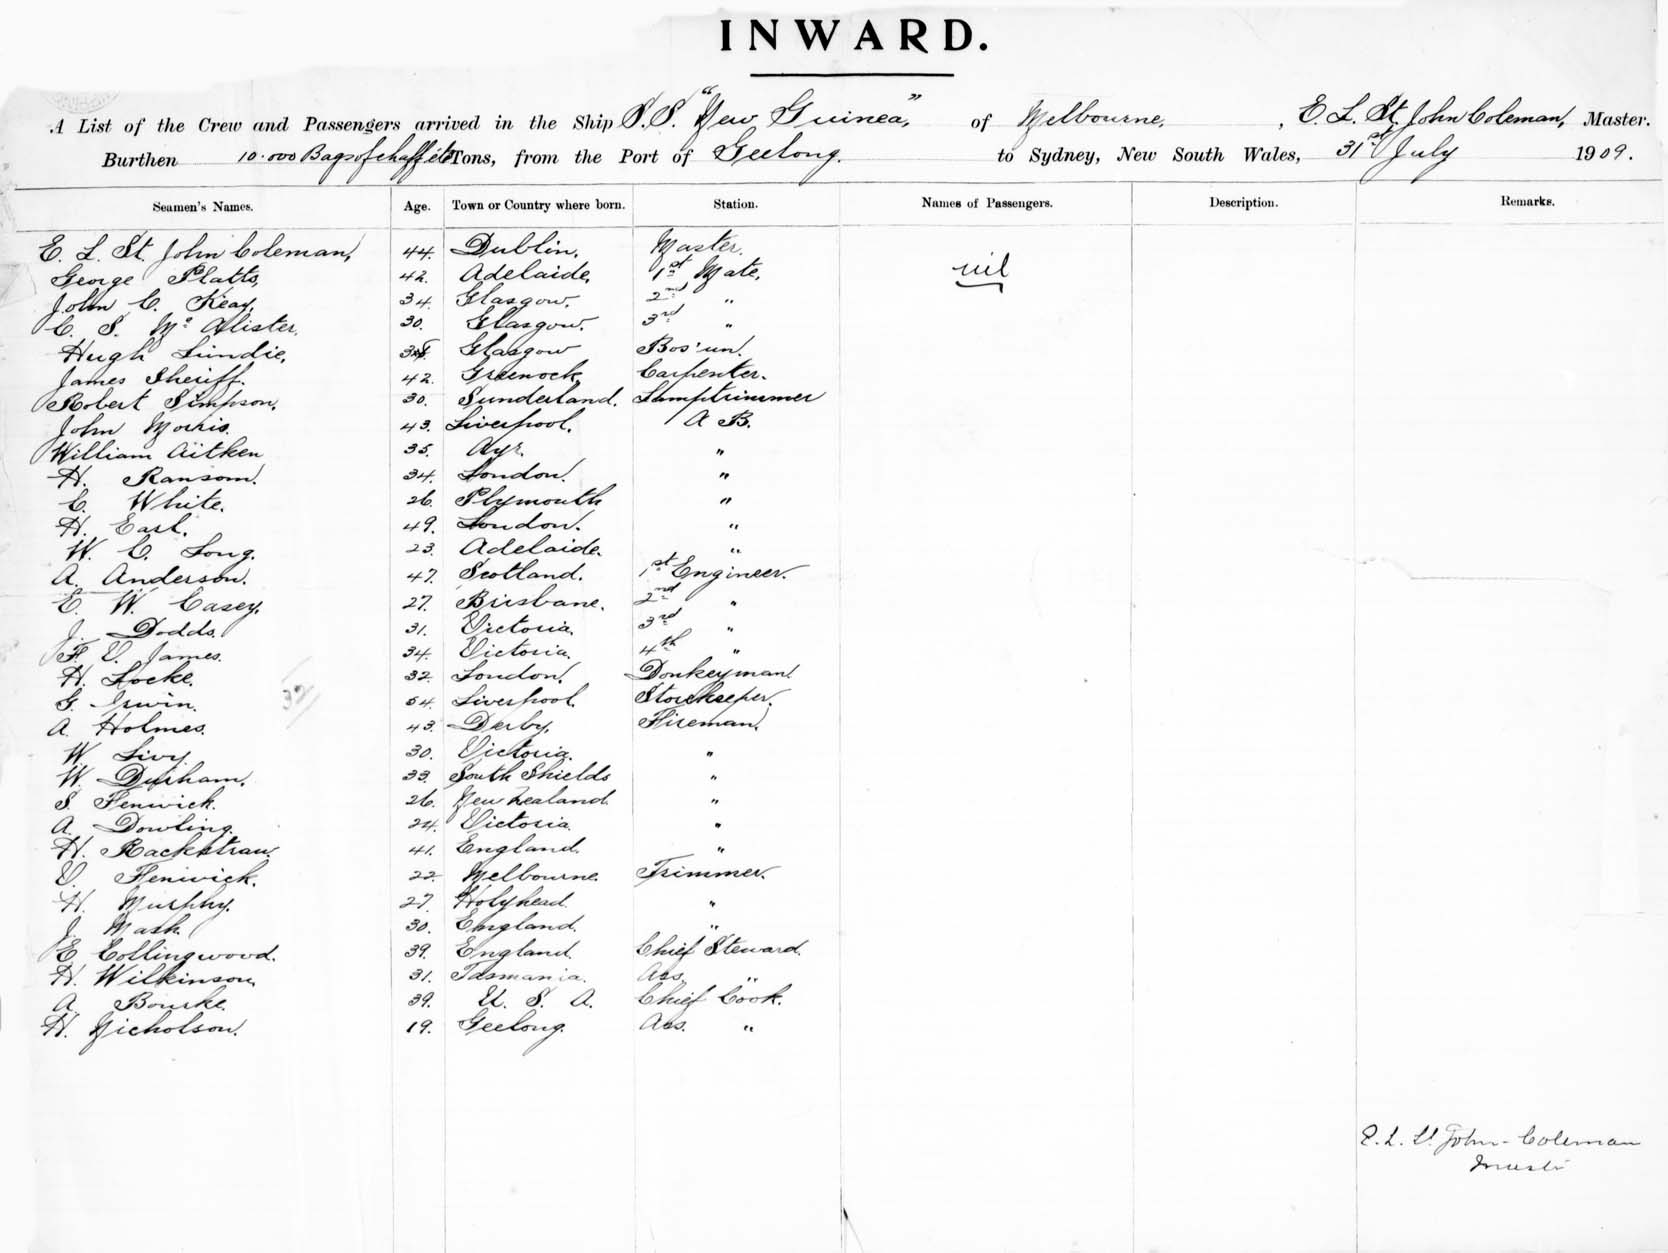 INWARD.
A List of the Crew and Passengers arrived in the Ship S.S. "New Guinea", of Melbourne, , E. L. St. John Coleman, Master.
Burthen 10.000 Bags of chaff etc Tons, from the Port of Geelong. to Sydney, New South Wales, 31st July 1909.
Seamen's Names. Age. Town or Country where born. Station. Names of Passengers. Description. Remarks.
E. L. St. John Coleman, 44. Dublin. Master. nil
George Platts, 42. Adelaide, 1st Mate,
John C. Keay, 34. Glasgow. 2nd "
C. S. Mc Alister, 30. Glasgow. 3rd "
Hugh Lundie, Glasgow Bos'un.
James Sheriff. 42. Greenock Carpenter.
Robert Simpson, 30. Sunderland. Lamptrimmer
John Morris. 43. Liverpool. A B.
William Aitken 35. Ayr. "
H. Ransom. 34. London. "
C. White. 26. Plymouth "
H. Earl. 49. London. "
W. C. Long. 23. Adelaide. "
A. Anderson. 47. Scotland. 1st Engineer.
E. W. Casey, 27. Brisbane. 2nd "
J. Dodds. 31. Victoria. 3rd "
F. V. James. 34. Victoria. 4th "
H. Locke. 32. London. Donkeyman.
G. Irwin. 54. Liverpool. Storekeeper.
32
A. Holmes. 43. Derby. Fireman.
W. Livy. 30. Victoria. "
W. Durham. 33. South Shields "
S. Fenwick. 26. New Zealand. "
A. Dowling. 24. Victoria. "
H. Rackstraw. 41. England. "
V. Fenwick. 22. Melbourne. Trimmer.
H. Murphy. 27. Holyhead. "
J. Mask. 30. England. "
E Collingwood. 39. England. Chief Steward.
H. Wilkinson. 31. Tasmania. Ass. "
A. Bourke. 39. U. S. A. Chief Cook.
H. Nicholson. 19. Geelong. Ass. "
E. L. St. John-Coleman
Master